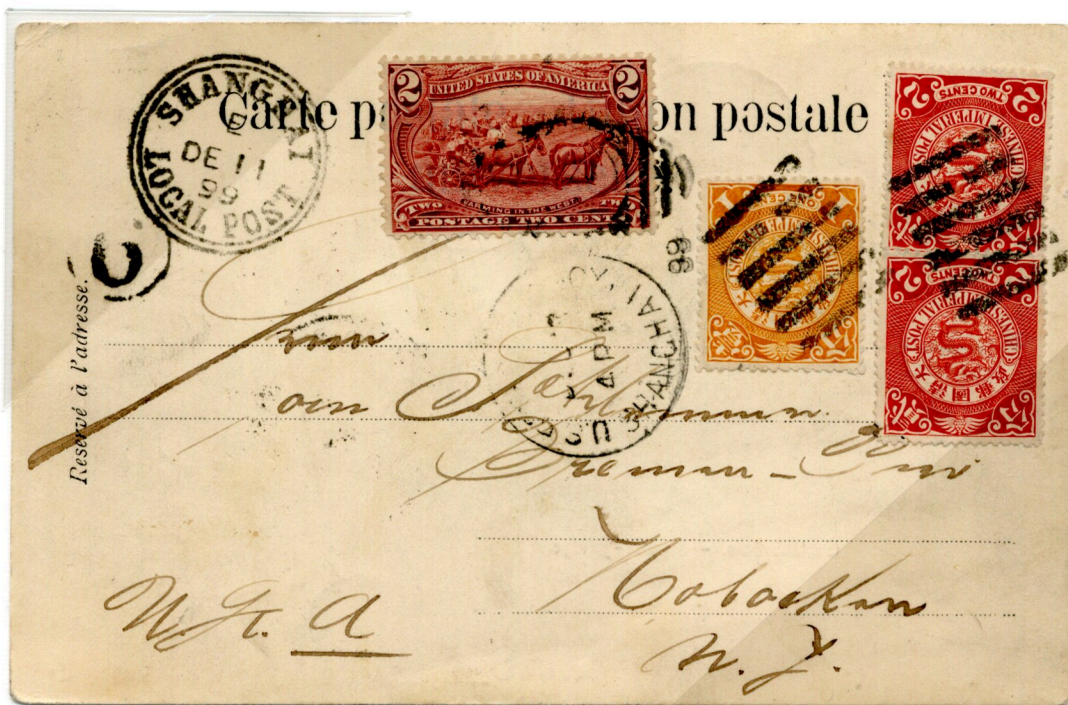 SHANGHAI
LOCAL POST
E
DE 11
99
Carte p
on postale
2 2
UNITED STATES OF AMERICA
FARMING IN THE WEST.
TWO TWO
POSTAGE TWO CENTS
1 1
ONE CENT
CHINESE IMPERIAL POST
大清國郵政
壹分
2 2
TWO CENTS
CHINESE IMPERIAL POST
2 2
TWO CENTS
CHINESE IMPERIAL POST
大清國郵政
貳分
99
4 PM
SHANGHAI
U.S.
Reservé à l'adresse.
Herrn
Bremen - Pier
Hoboken
N. J.
U. St. A